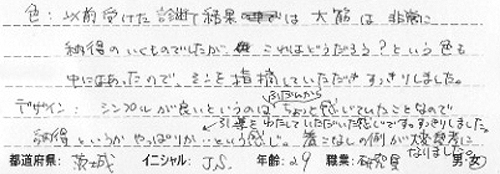 色：以前受けた診断で結果は大筋は非常に
納得のいくものでしたが これはどうだろう？という色も
中にはあったので、そこを指摘していただきすっきりしました。
デザイン：シンプルが良いというのは、ふだんからちょっと感じていたことなので
納得というかやっぱりか…という感じ。着こなしの例が大変参考に
引導をわたしていただいた感じですっきりしました。
なりました。
都道府県：茨城 イニシャル：J.S. 年齢：29 職業：研究員 男・女